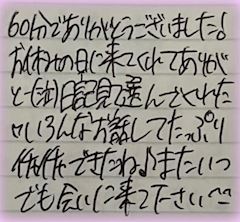 60分でありがとうございました!
お休みの日に来てくれてありが
と〜 日記見て選んでくれた
いろんなお話してたっぷり
できたね♪またいつ
でも会いに来て下さい^^